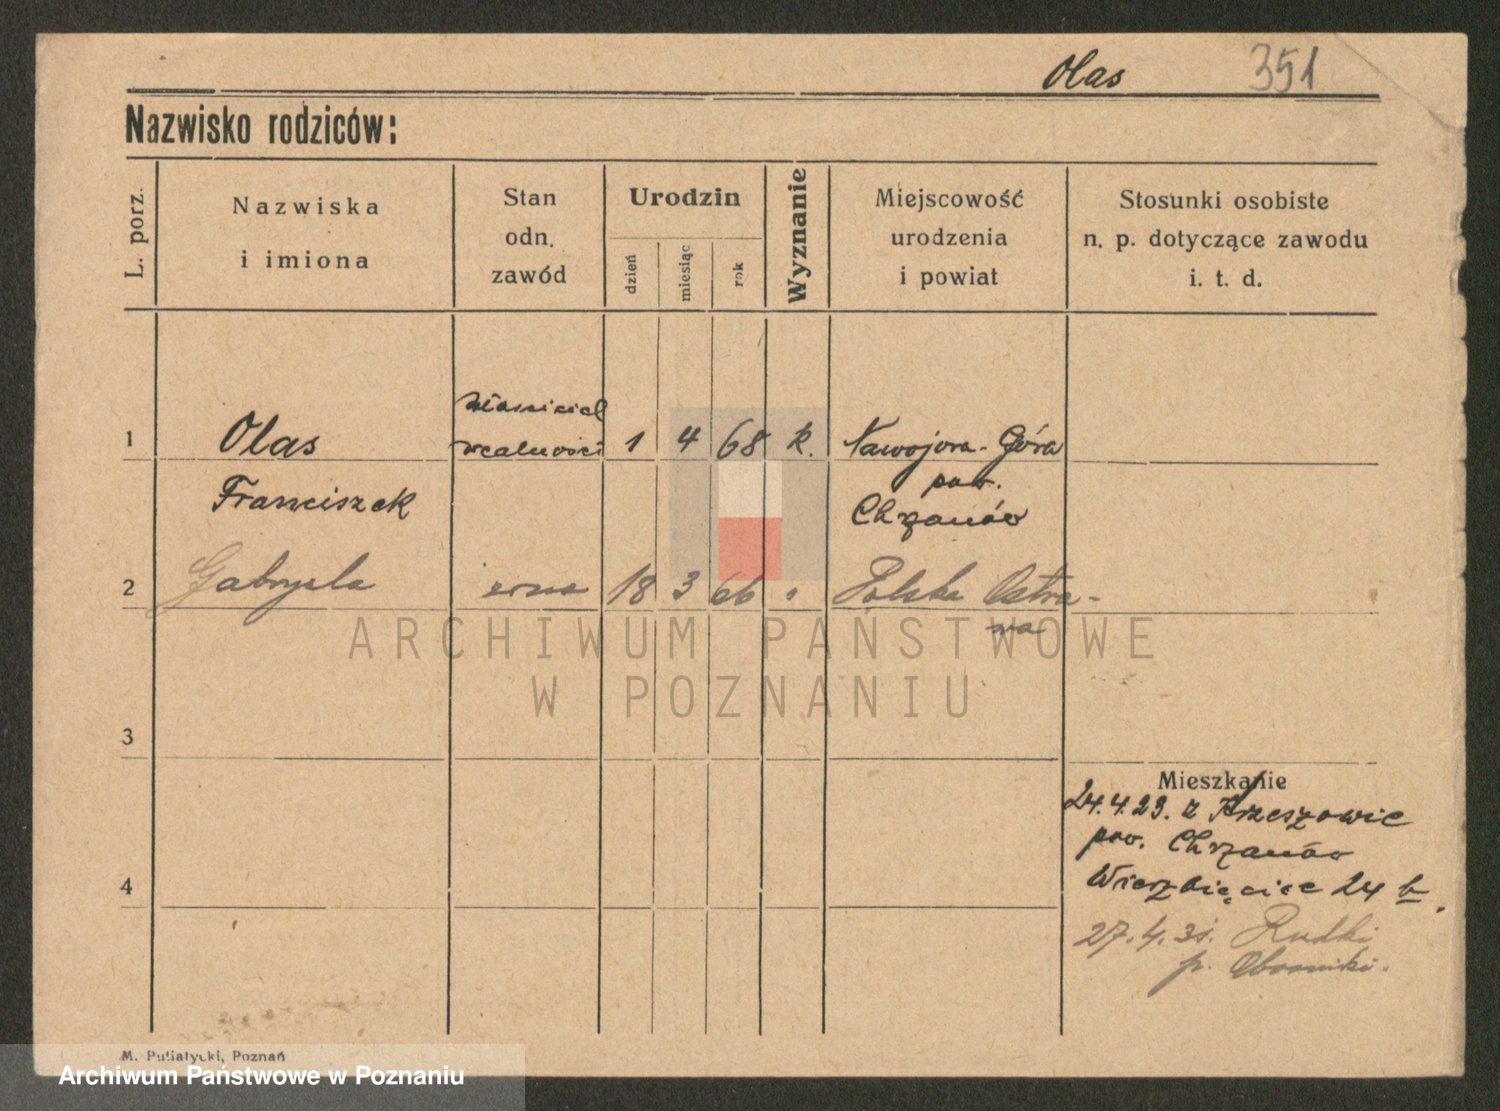 Olas 351
Nazwisko rodziców:
L. porz.
Nazwiska
i imiona
Stan
odn.
zawód
Urodzin
dzień
miesiąc
rok
Wyznanie
Miejscowość
urodzenia
i powiat
Stosunki osobiste
n. p. dotyczące zawodu
i. t. d.
właściciel
1 Olas realności 1 4 68 k. Nawojowa-Góra
Franciszek pow.
Chrzanów
2 Gabryela żona 18 3 66 " Polska Ostra-
wa
ARCHIWUM PAŃSTWOWE
W POZNANIU
3
Mieszkanie
24.4.23. z Krzeszowic
pow. Chrzanów
4 Wierzbięcice 24 b.
27.4.35. Rudki
p. Oborniki.
M. Putiatycki, Poznań
Archiwum Państwowe w Poznaniu